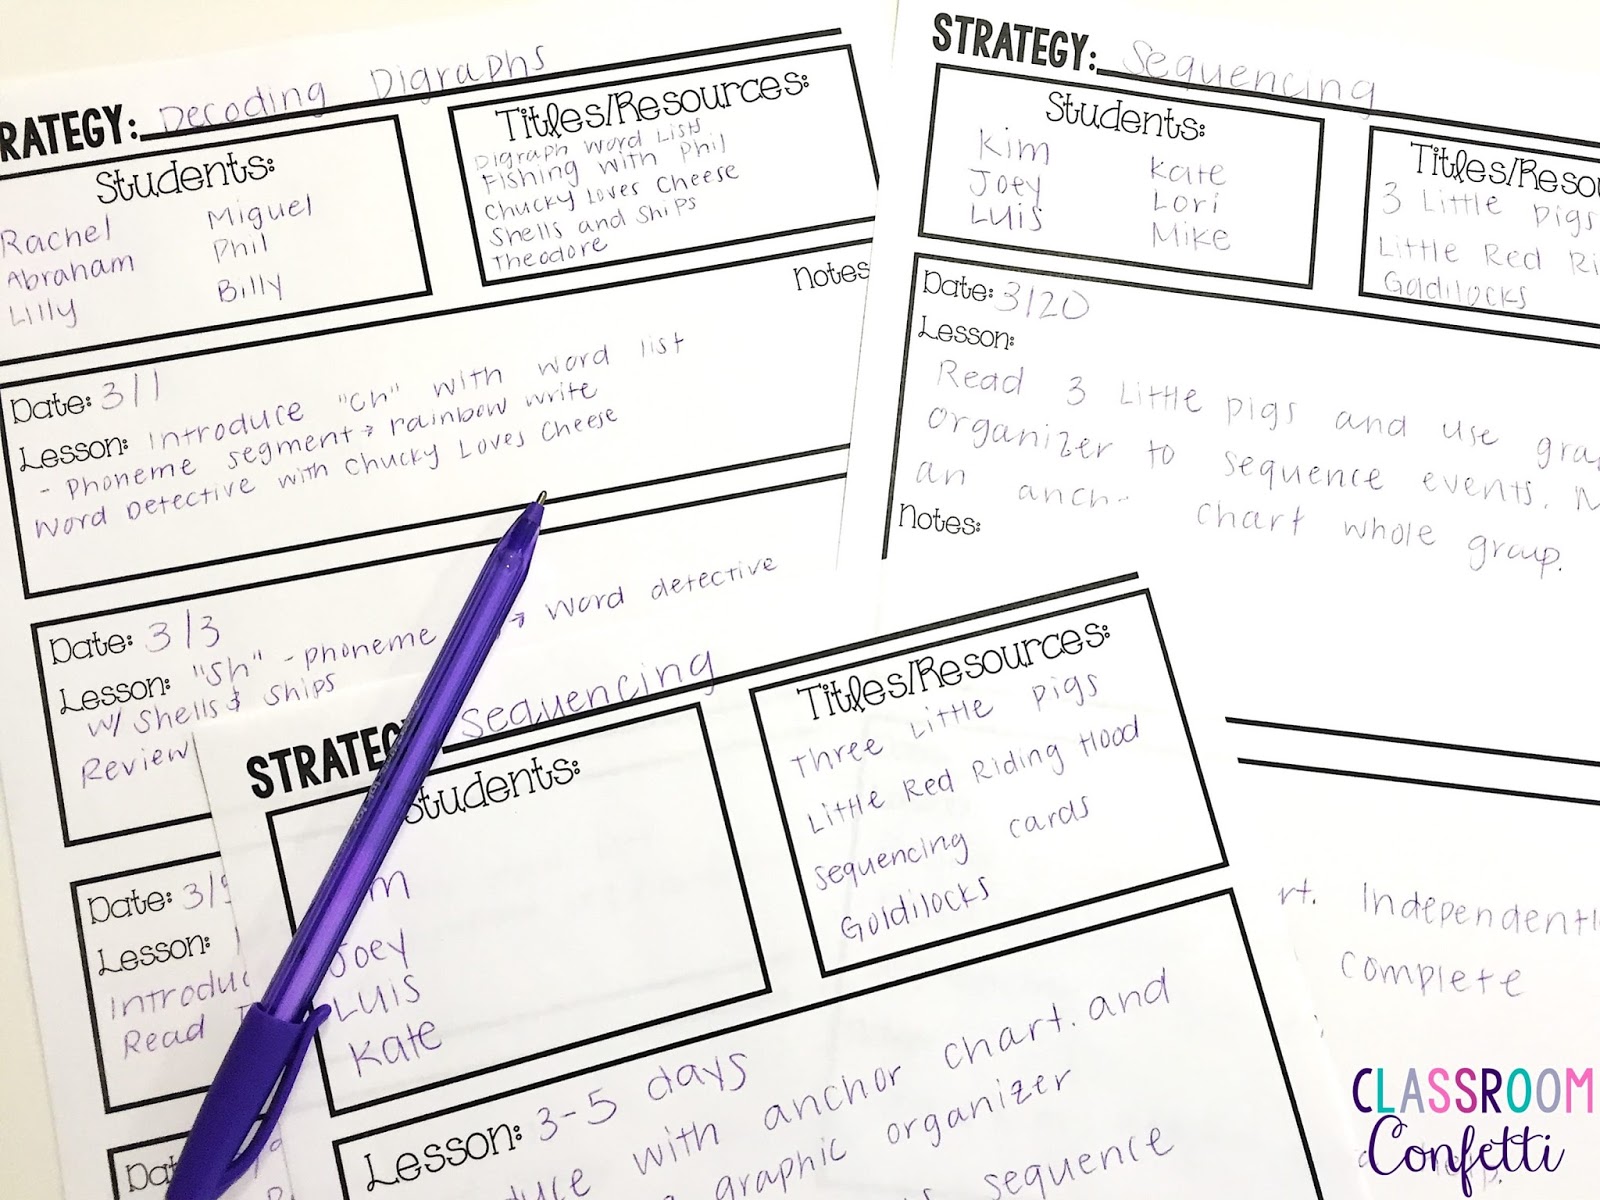 RATEGY: Decoding Digraphs
Students:
Rachel Miguel
Abraham Phil
Lilly Billy
Titles/Resources:
Digraph Word Lists
Fishing with Phil
Chucky Loves Cheese
Shells and Ships
Theodore
Notes
Date: 3/1
Lesson: Introduce "Ch" with word list
- Phoneme segment → rainbow write
Word Detective with Chucky Loves Cheese
Date: 3/3
Lesson: "Sh" - phoneme → word detective
w/ Shells & Ships
Review
Date: 3/
Lesson:
Introduc
Read
Dat
STRATEGY: Sequencing
Students:
Kim Kate
Joey Lori
Luis Mike
Titles/Resou
3 Little pigs
Little Red Ri
Goldilocks
Date: 3/20
Lesson:
Read 3 Little pigs and use gra
organizer to sequence events.
an anch- chart whole group.
Notes:
rt. Independentl
complete
STRATEG Sequencing
Students:
Joey
Luis
Kate
Titles/Resources:
Three Little pigs
Little Red Riding Hood
sequencing cards
Goldilocks
Lesson: 3-5 days
duce with anchor chart. and
graphic organizer
sequence
CLASSROOM
Confetti